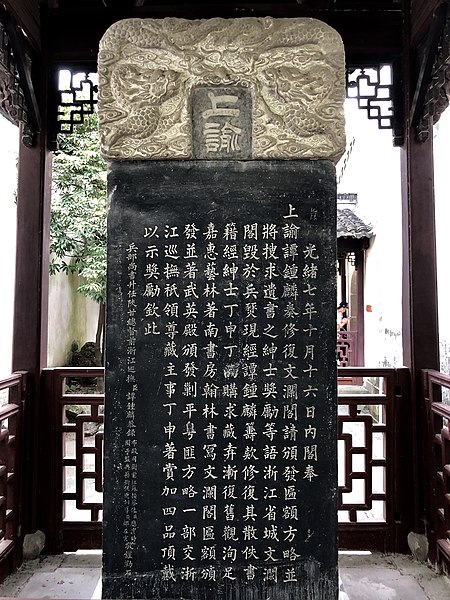 上諭
光緒七年十月十六日內閣奉
上諭譚鍾麟奏修復文瀾閣請頒發匾額方略並
將搜求遺書之紳士獎勵等語浙江省城文瀾
閣毀於兵燹現經譚鍾麟籌款修復其散佚書
籍經紳士丁申丁丙購求藏弆漸復舊觀洵足
嘉惠藝林著南書房翰林書寫文瀾閣匾額頒
發並著武英殿頒發剿平粵匪方略一部交浙
江巡撫祇領尊藏主事丁申著賞加四品頂戴
以示獎勵欽此
兵部尚書升任陝甘總督前浙江巡撫臣譚鍾麟恭錄